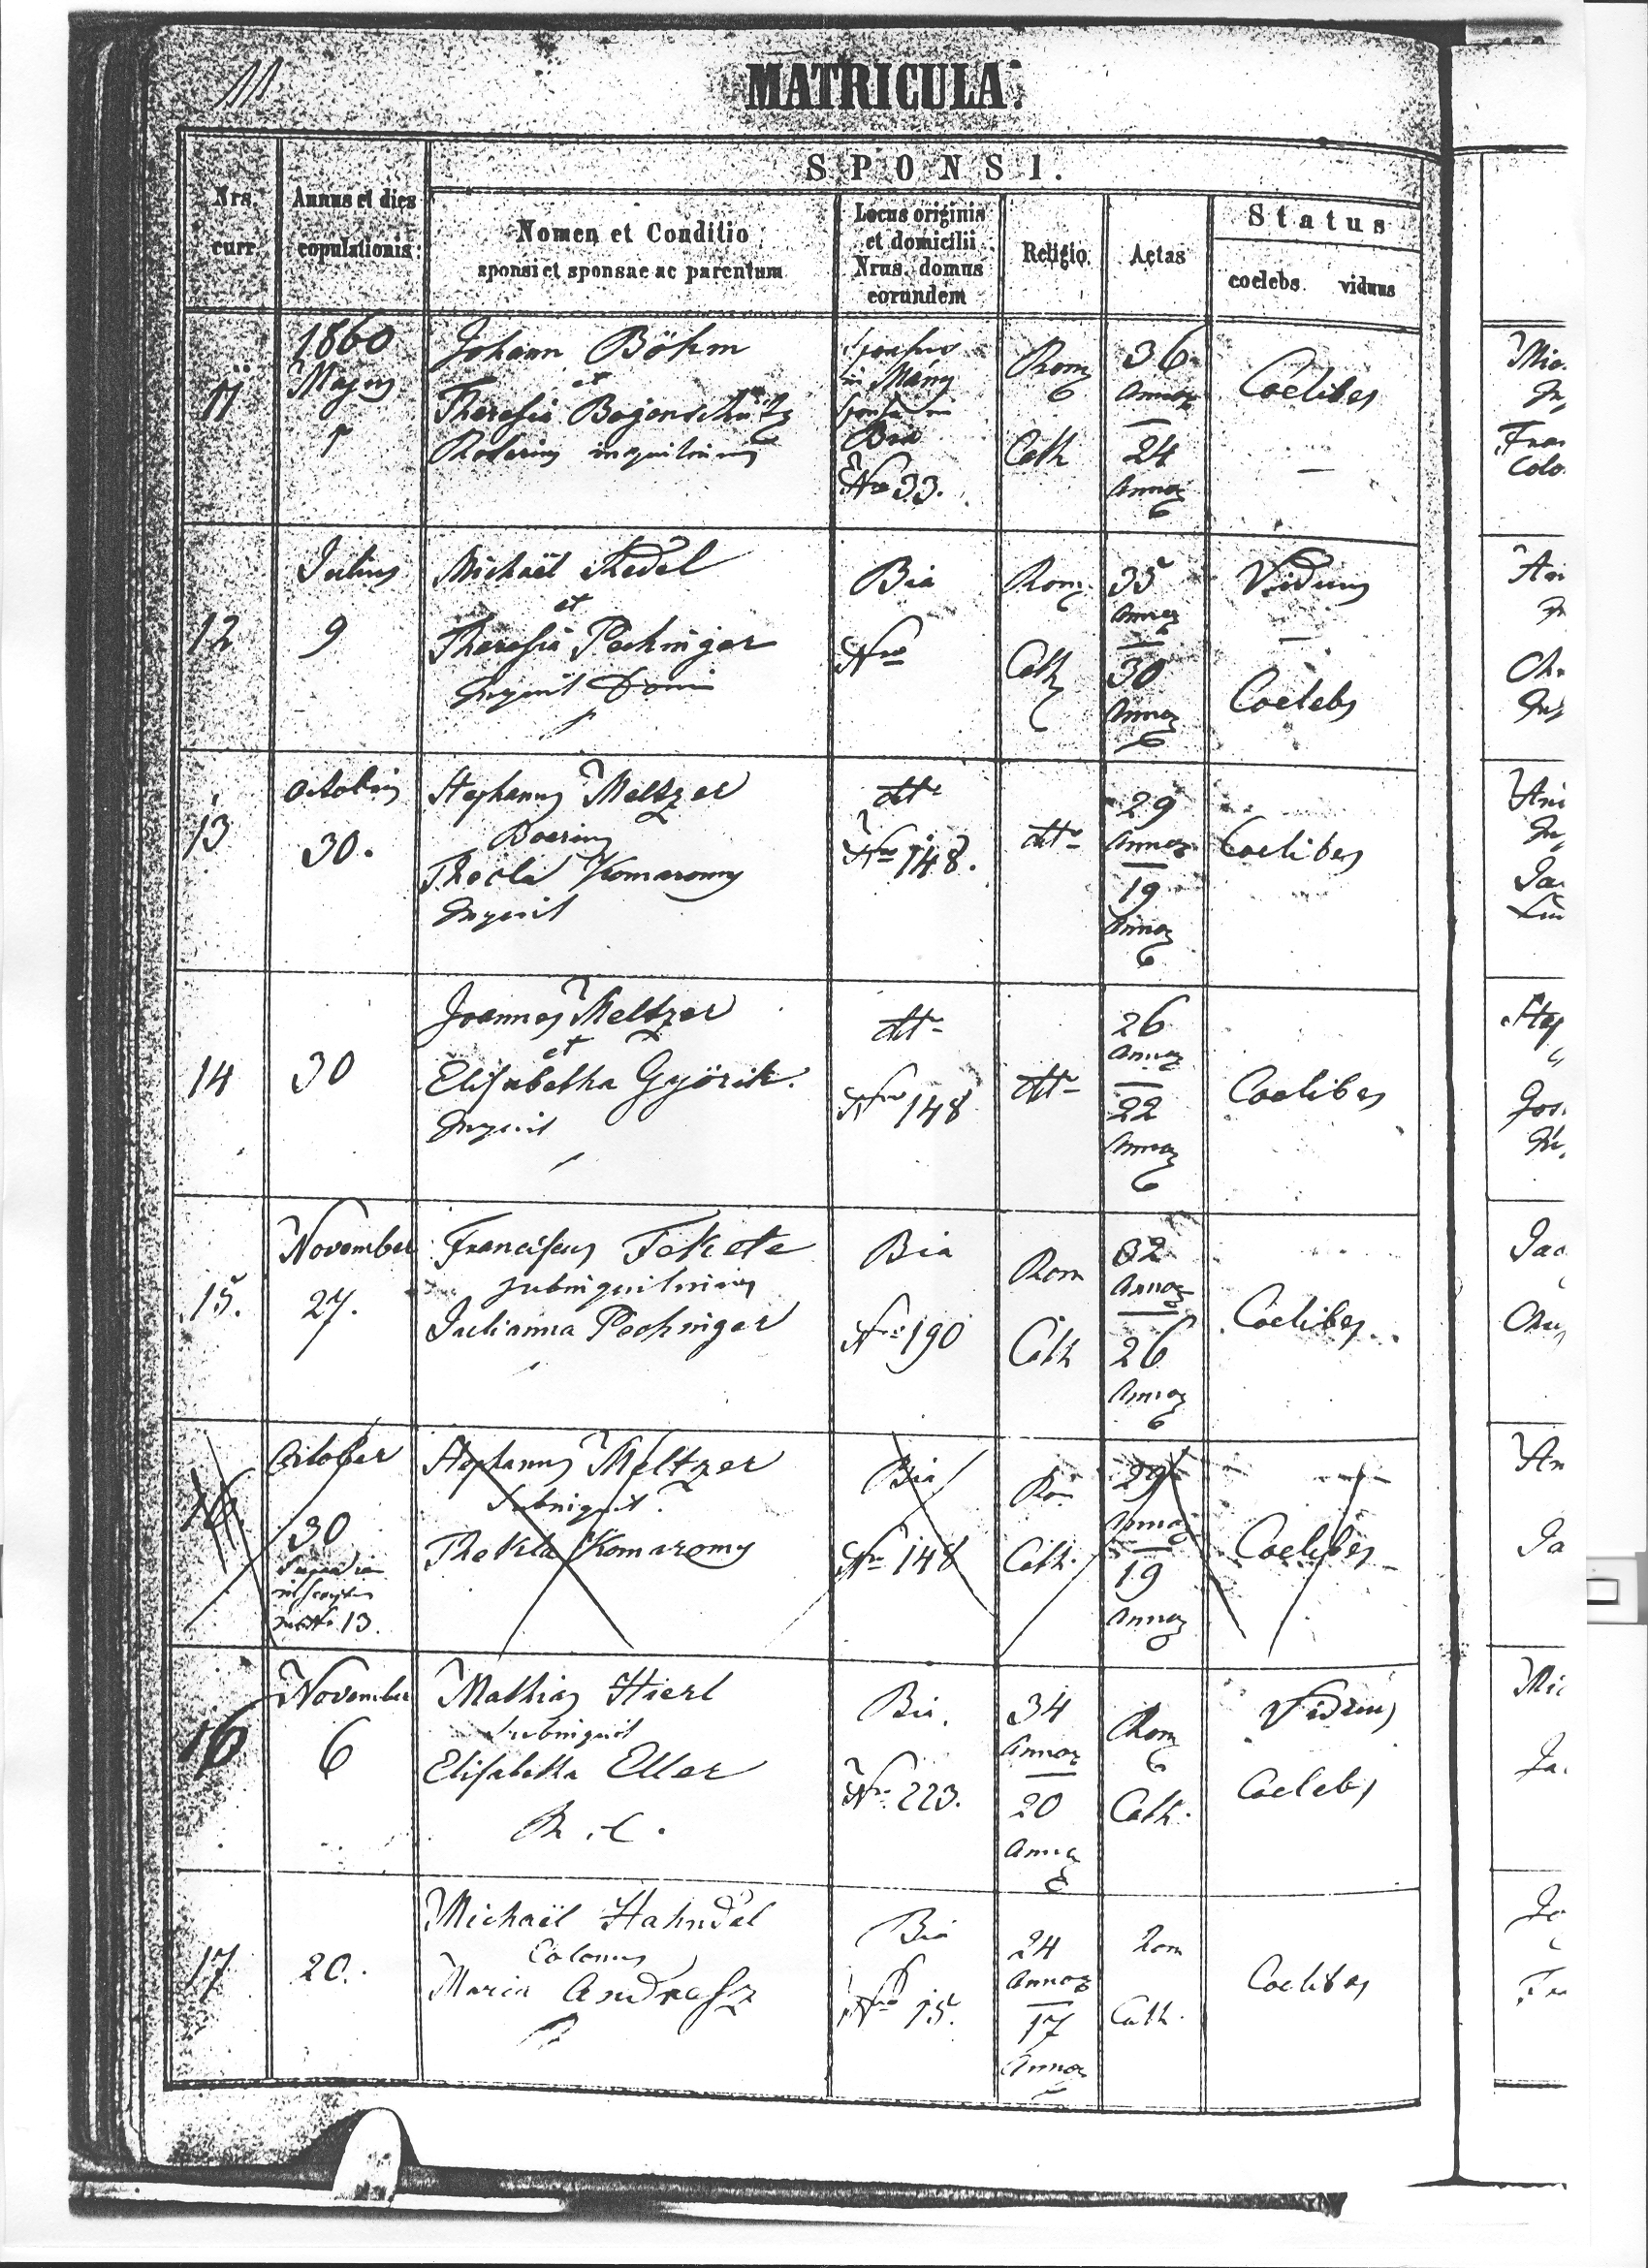 111
MATRICULA.
SPONSI.
Nrs. curr.
Annus et dies copulationis
Nomen et Conditio
sponsi et sponsae ac parentum
Locus originis
et domicilii
Nrus. domus
eorundem
Religio
Aetas
Status
coelebs viduus
11
1860
Majus
Johann Böhm
et
Theresia
in Mány
Bia
Nro 33.
Rom
Cath
36
Annor
24
Annor
Coelibes
12
Julius
9
Michaël
et
Theresia Pechinger
Inquil
Bia
Nro
Rom
Cath
35
Annor
30
Annor
Viduus
Coelebs
13
Octobris
30.
Stephanus Meltzer
Thecla Komaromy
Inquil
dtto
Nro 148.
dtto
29
Annor
19
Annor
Coelibes
14
30
Joannes Meltzer
et
Elisabetha Györik.
Inquil
dtto
Nro 148
dtto
26
Annor
22
Annor
Coelibes
15.
November
27.
Franciscus Fekete
subinquilinus
Julianna Pechinger
Bia
Nro 190
Rom
Cath
32
Annor
26
Annor
Coelibes
16
October
30
13.
Stephanus Meltzer
Subinquil
Thekla Komaromy
Bia
Nro 148
Ro
Cath.
29
Annor
19
Annor
Coelibes
16
November
6
Mathias Hierl
Subinquil
Elisabetha Eller
R. C.
Bia.
Nro. 223.
34
Annor
20
Annor
Rom
Cath.
Viduus
Coelebs
17
20.
Michaël Hahndel
Colonus
Maria Andresz
Bia
Nro 15.
24
Annor
17
Annor
Rom
Cath.
Coelibes